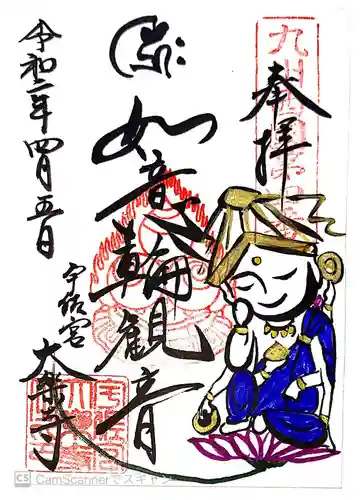 奉拝
如意輪観音
令和二年四月五日
宇佐宮
大楽寺
CS CamScannerでスキャン